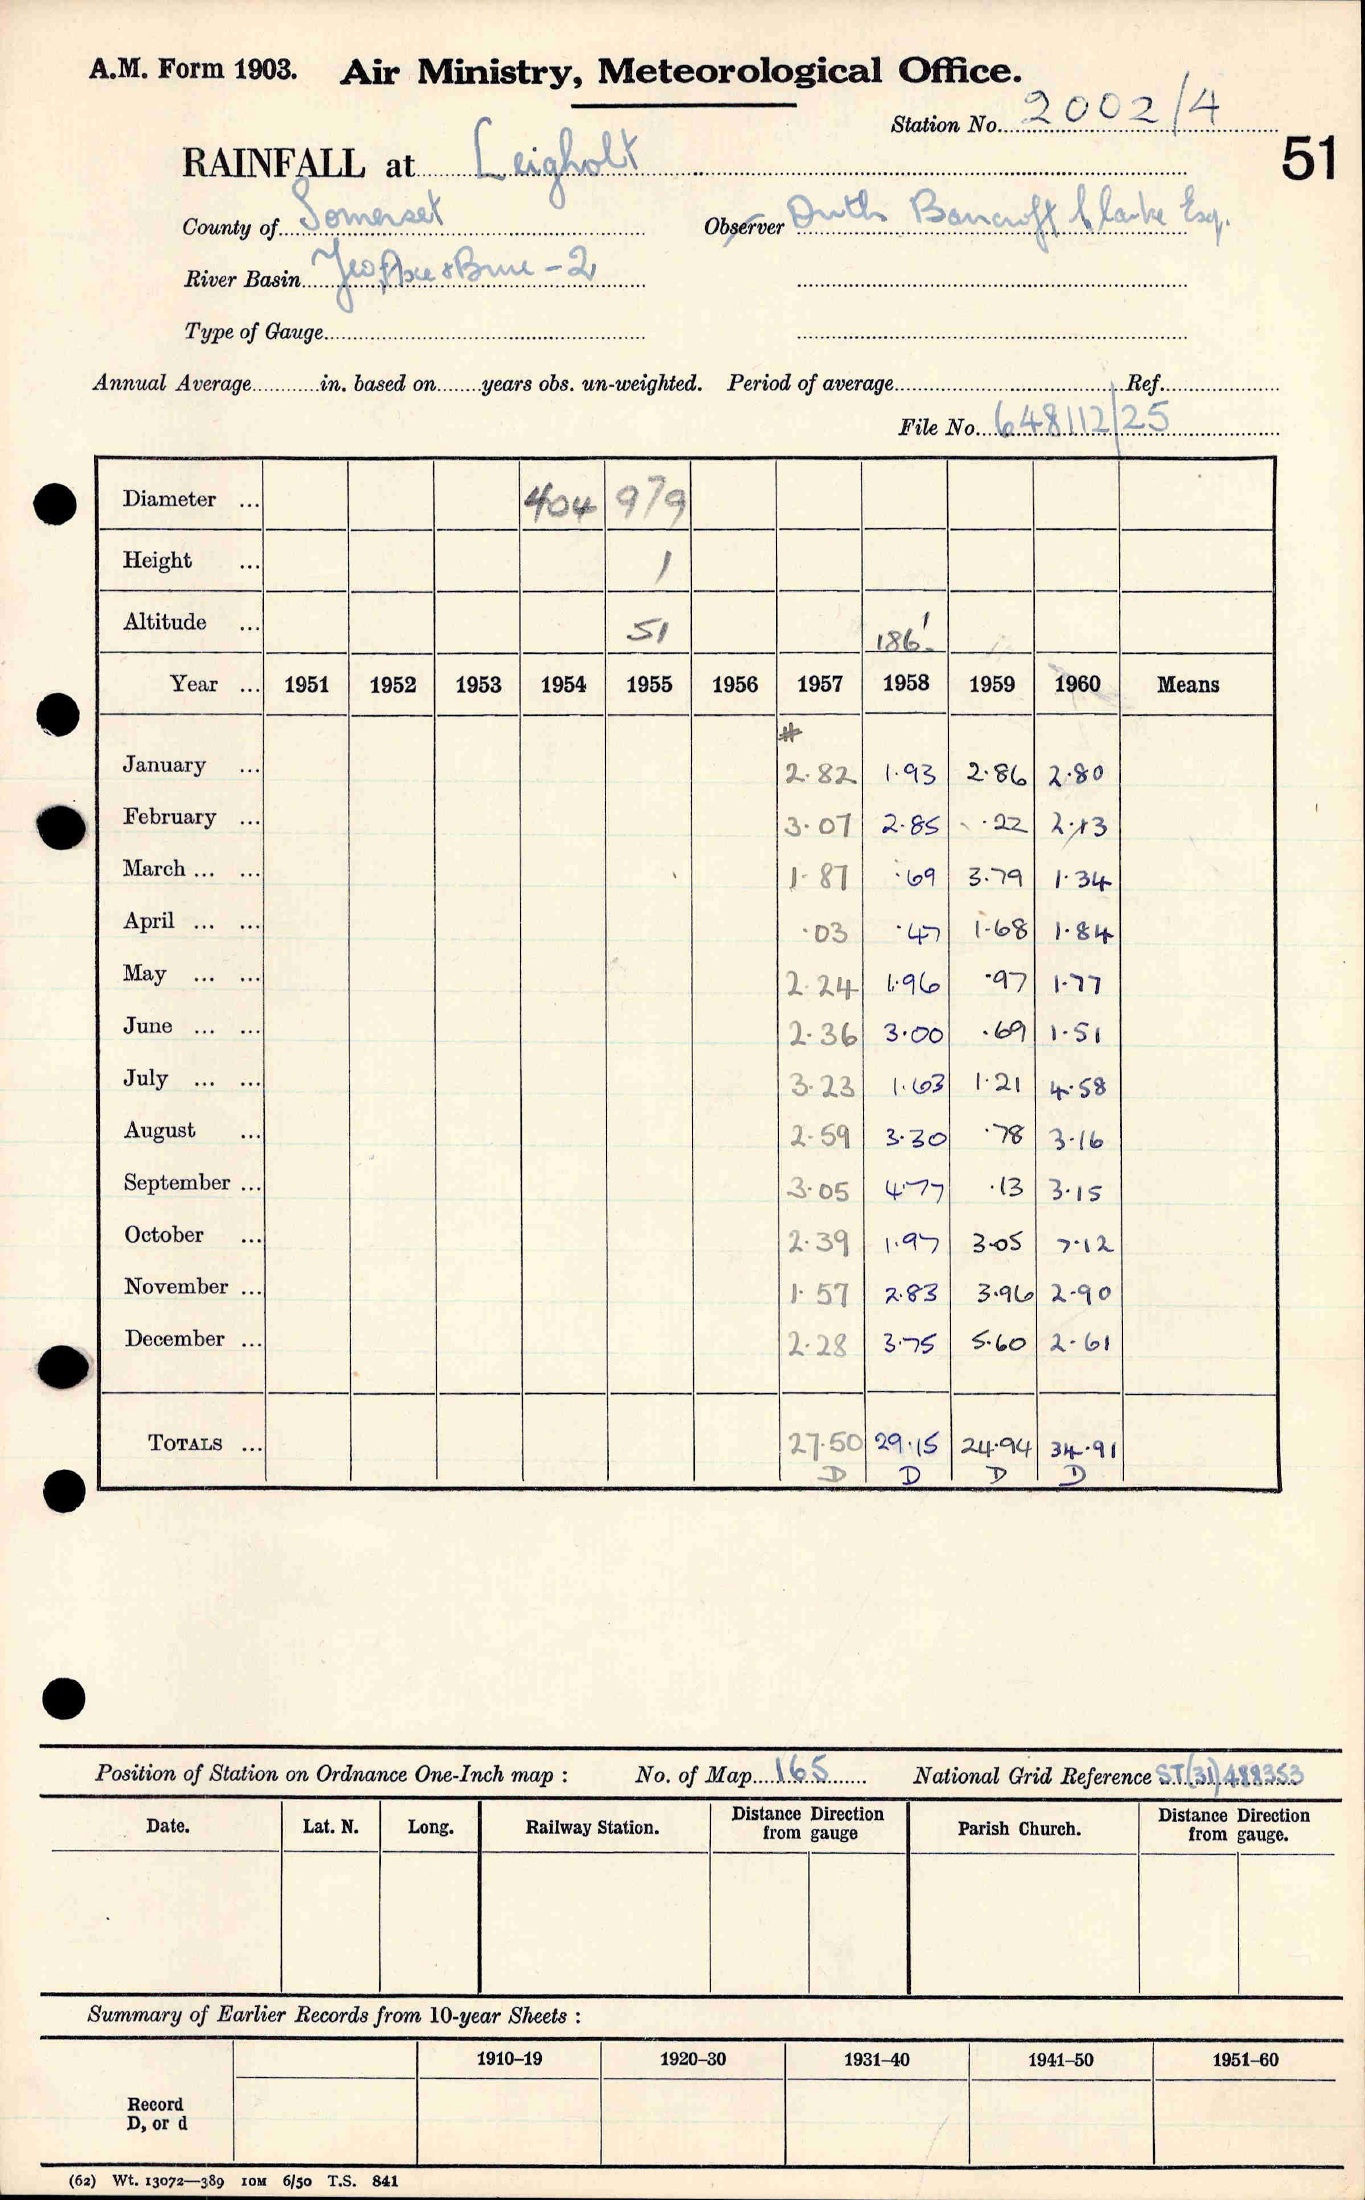 A.M. Form 1903. Air Ministry, Meteorological Office.
Station No. 2002/4
51
RAINFALL at Leigholt
County of Somerset Observer Bancroft Clarke Esq.
River Basin Yeo, Axe & Brue - 2
Type of Gauge
Annual Average in. based on years obs. un-weighted. Period of average Ref.
File No. 648112/25
Diameter ... 404 979
Height ... 1
Altitude ... 51 186'
Year ... 1951 1952 1953 1954 1955 1956 1957 1958 1959 1960 Means
#
January ... 2.82 1.93 2.86 2.80
February ... 3.07 2.85 .22 2.13
March ... ... 1.87 .69 3.79 1.34
April ... ... .03 .47 1.68 1.84
May ... ... 2.24 1.96 .97 1.77
June ... ... 2.36 3.00 .69 1.51
July ... ... 3.23 1.63 1.21 4.58
August ... 2.59 3.30 .78 3.16
September ... 3.05 4.77 .13 3.15
October ... 2.39 1.97 3.05 7.12
November ... 1.57 2.83 3.96 2.90
December ... 2.28 3.75 5.60 2.61
TOTALS ... 27.50 29.15 24.94 34.91
D D D D
Position of Station on Ordnance One-Inch map : No. of Map 165 National Grid Reference ST(31)488353
Date. Lat. N. Long. Railway Station. Distance Direction from gauge Parish Church. Distance Direction from gauge.
Summary of Earlier Records from 10-year Sheets :
1910–19 1920–30 1931–40 1941–50 1951–60
Record
D, or d
(62) Wt. 13072—389 10M 6/50 T.S. 841